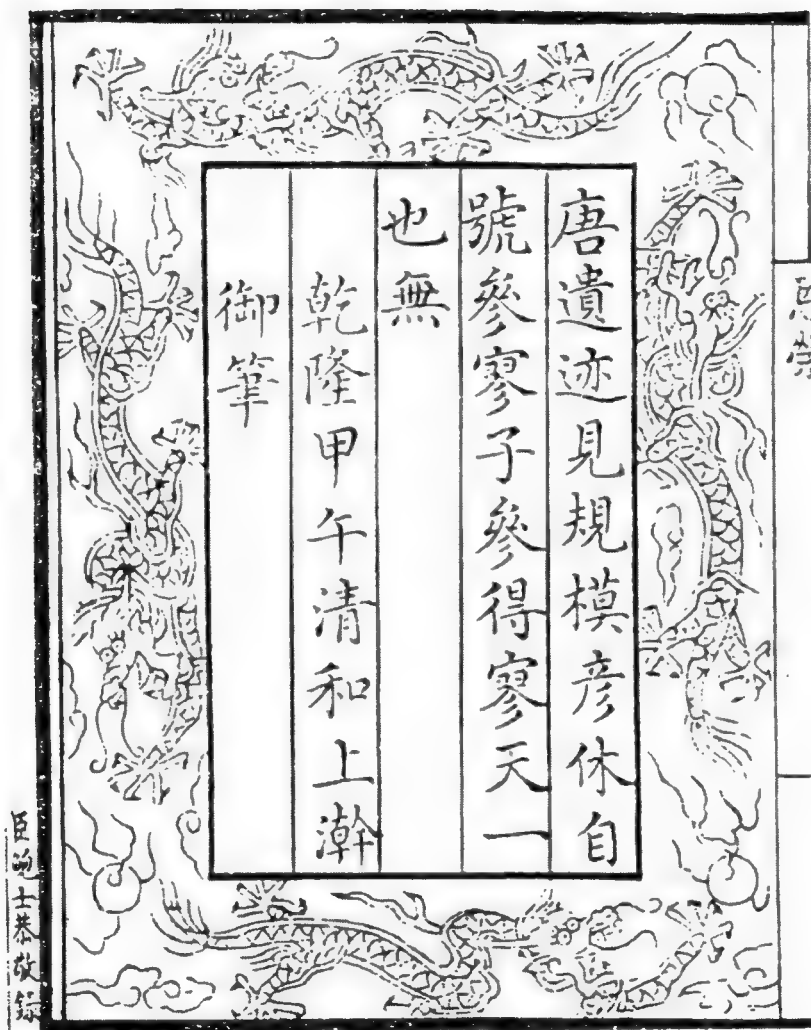 唐遺迹見規模彦休自
號參寥子參得寥天一
也無
乾隆甲午清和上澣
御筆
士恭敬錄